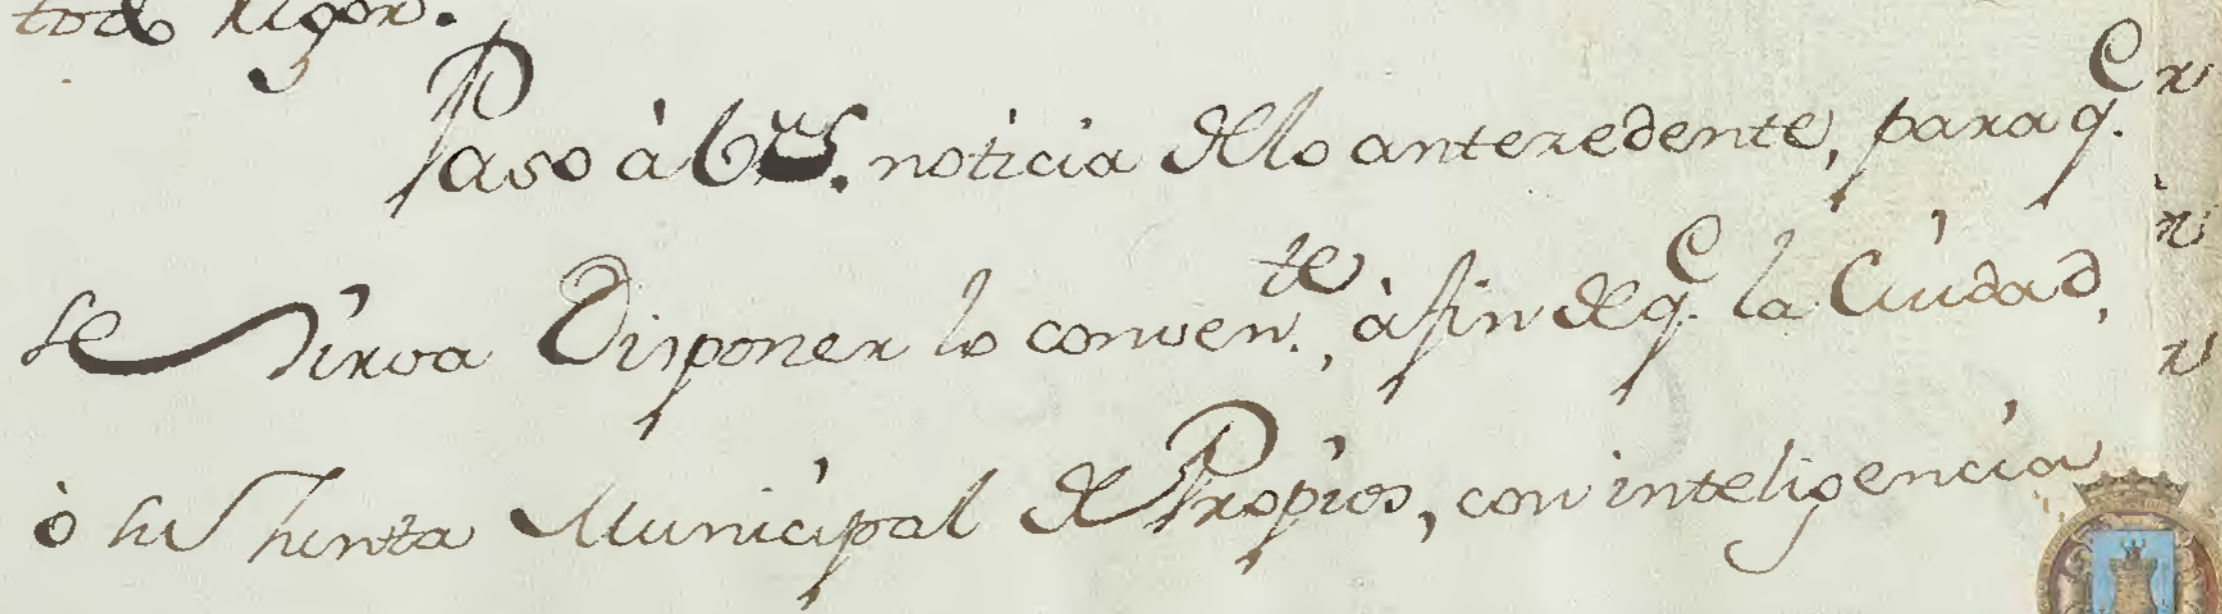 todo rigor.
Paso à Vms. noticia delo anteredente, para q.e
se sirva Disponer lo conven.te, à fin de q.e la Ciudad,
ò su Junta Municipal de Propios, con inteligencia